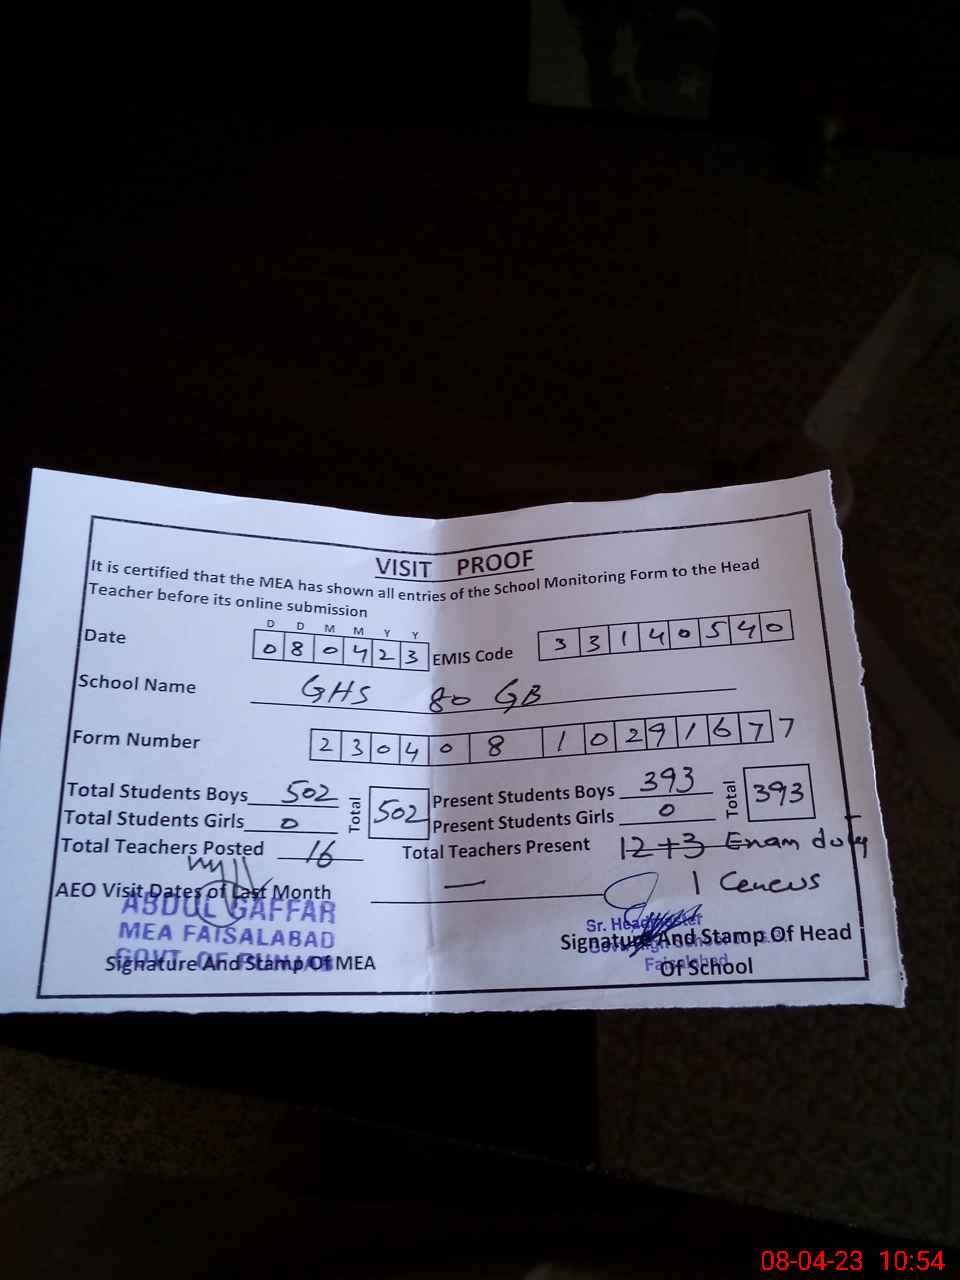 VISIT PROOF
It is certified that the MEA has shown all entries of the School Monitoring Form to the Head
Teacher before its online submission
D D M M Y Y
Date 0 8 0 4 2 3 EMIS Code 3 3 1 4 0 5 4 0
School Name GHS 80 GB
Form Number 2 3 0 4 0 8 1 0 2 9 1 6 7 7
Total Students Boys 502 Total 502 Present Students Boys 393 Total 393
Total Students Girls 0 Present Students Girls 0
Total Teachers Posted 16 Total Teachers Present 12+3 Enam duty
AEO Visit Dates of Last Month — 1 Cencus
ABDUL GAFFAR
MEA FAISALABAD
GOVT. OF PUNJAB
Signature And Stamp Of MEA
Sr. Headmaster
Signature And Stamp Of Head
Faisalabad
Of School
08-04-23 10:54